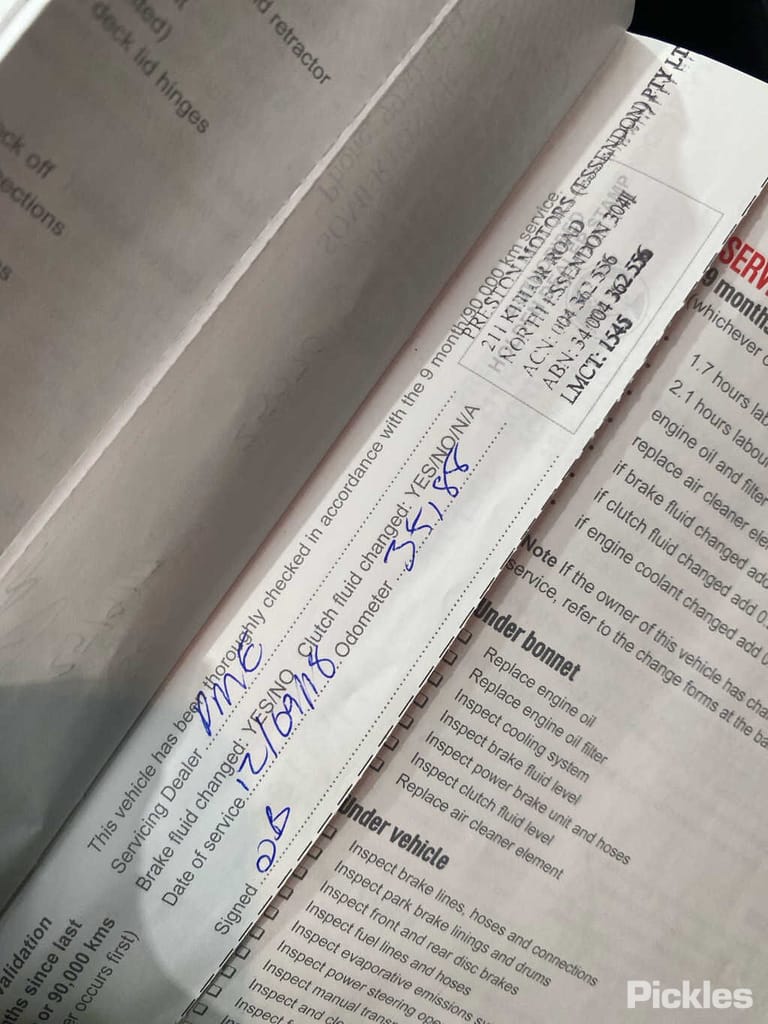 d retractor
deck lid hinges
ck off
ections
This vehicle has been thoroughly checked in accordance with the 9 month/90 000 km service.
Servicing Dealer PME
Brake fluid changed: YES/NO Clutch fluid changed: YES/NO/N/A
Date of service 12/09/18 Odometer 35,188
Signed
PRESTON MOTORS (ESSENDON) PTY LT
211 KEILOR ROAD
NORTH ESSENDON 3041
ACN: 004 362 556
ABN: 34 004 362 556
LMCT: 1545
STAMP
alidation
ths since last
or 90,000 kms
er occurs first)
SERV
9 months
(whichever
1.7 hours lab
2.1 hours labou
engine oil and filter
replace air cleaner ele
if brake fluid changed add
if clutch fluid changed add 0.
if engine coolant changed add 0
Note If the owner of this vehicle has cha
service, refer to the change forms at the ba
Under bonnet
Replace engine oil
Replace engine oil filter
Inspect cooling system
Inspect brake fluid level
Inspect power brake unit and hoses
Inspect clutch fluid level
Replace air cleaner element
Under vehicle
Inspect brake lines, hoses and connections
Inspect park brake linings and drums
Inspect front and rear disc brakes
Inspect fuel lines and hoses
Inspect evaporative emissions sy
Inspect power steering ope
Inspect manual trans
Inspect and cle
Pickles